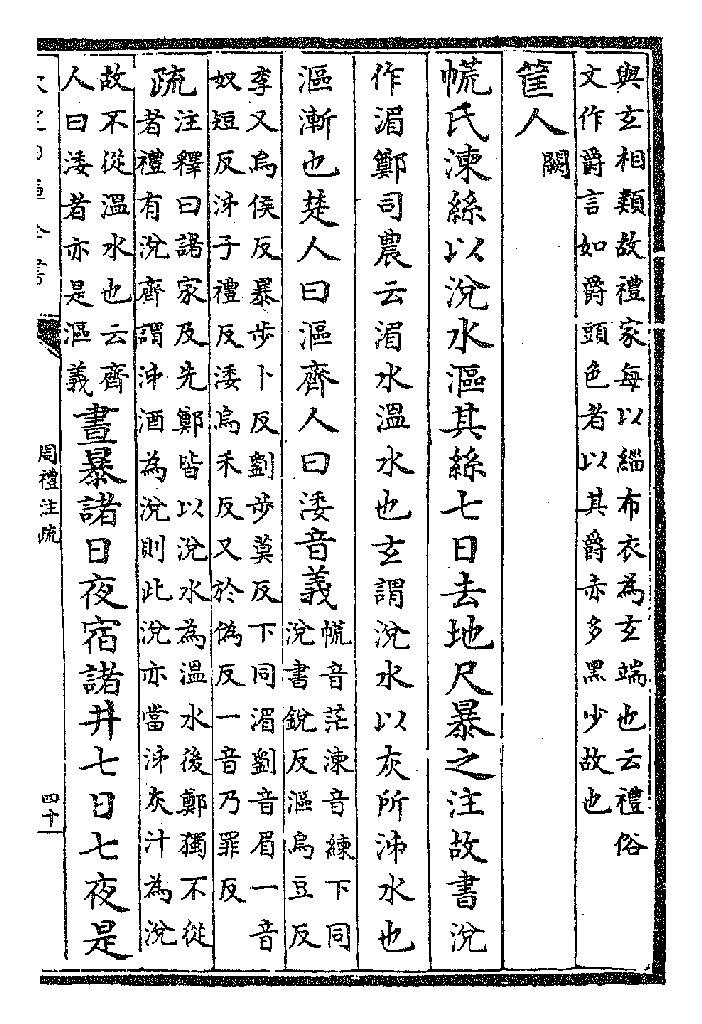 與玄相類故禮家每以緇布衣為玄端也云禮俗
文作爵言如爵頭色者以其爵赤多黑少故也
筐人闕
㡛氏湅絲以涗水漚其絲七日去地尺暴之注故書涗
作湄鄭司農云湄水溫水也玄謂涗水以灰所泲水也
漚漸也楚人曰漚齊人曰涹音義
㡛音茫湅音練下同
涗書銳反漚烏豆反
李又烏侯反暴步卜反劉步莫反下同湄劉音眉一音
奴短反泲子禮反涹烏禾反又於偽反一音乃罪反
疏
注釋曰諸家及先鄭皆以涗水為溫水後鄭獨不從
者禮有涗齊謂泲酒為涗則此涗亦當泲灰汁為涗
故不從溫水也云齊
人曰涹者亦是漚義
晝暴諸日夜宿諸井七日七夜是
周禮注疏
四十